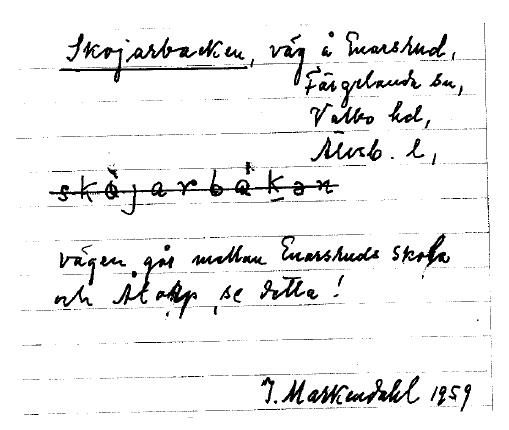 Skojarbacken, väg å Enarsrud,
Färgelanda sn,
Valbo hd,
Älvsb. l,
skòjarbàkən
vägen går mellan Enarsruds skola
och se detta!
J. Markendahl 1959